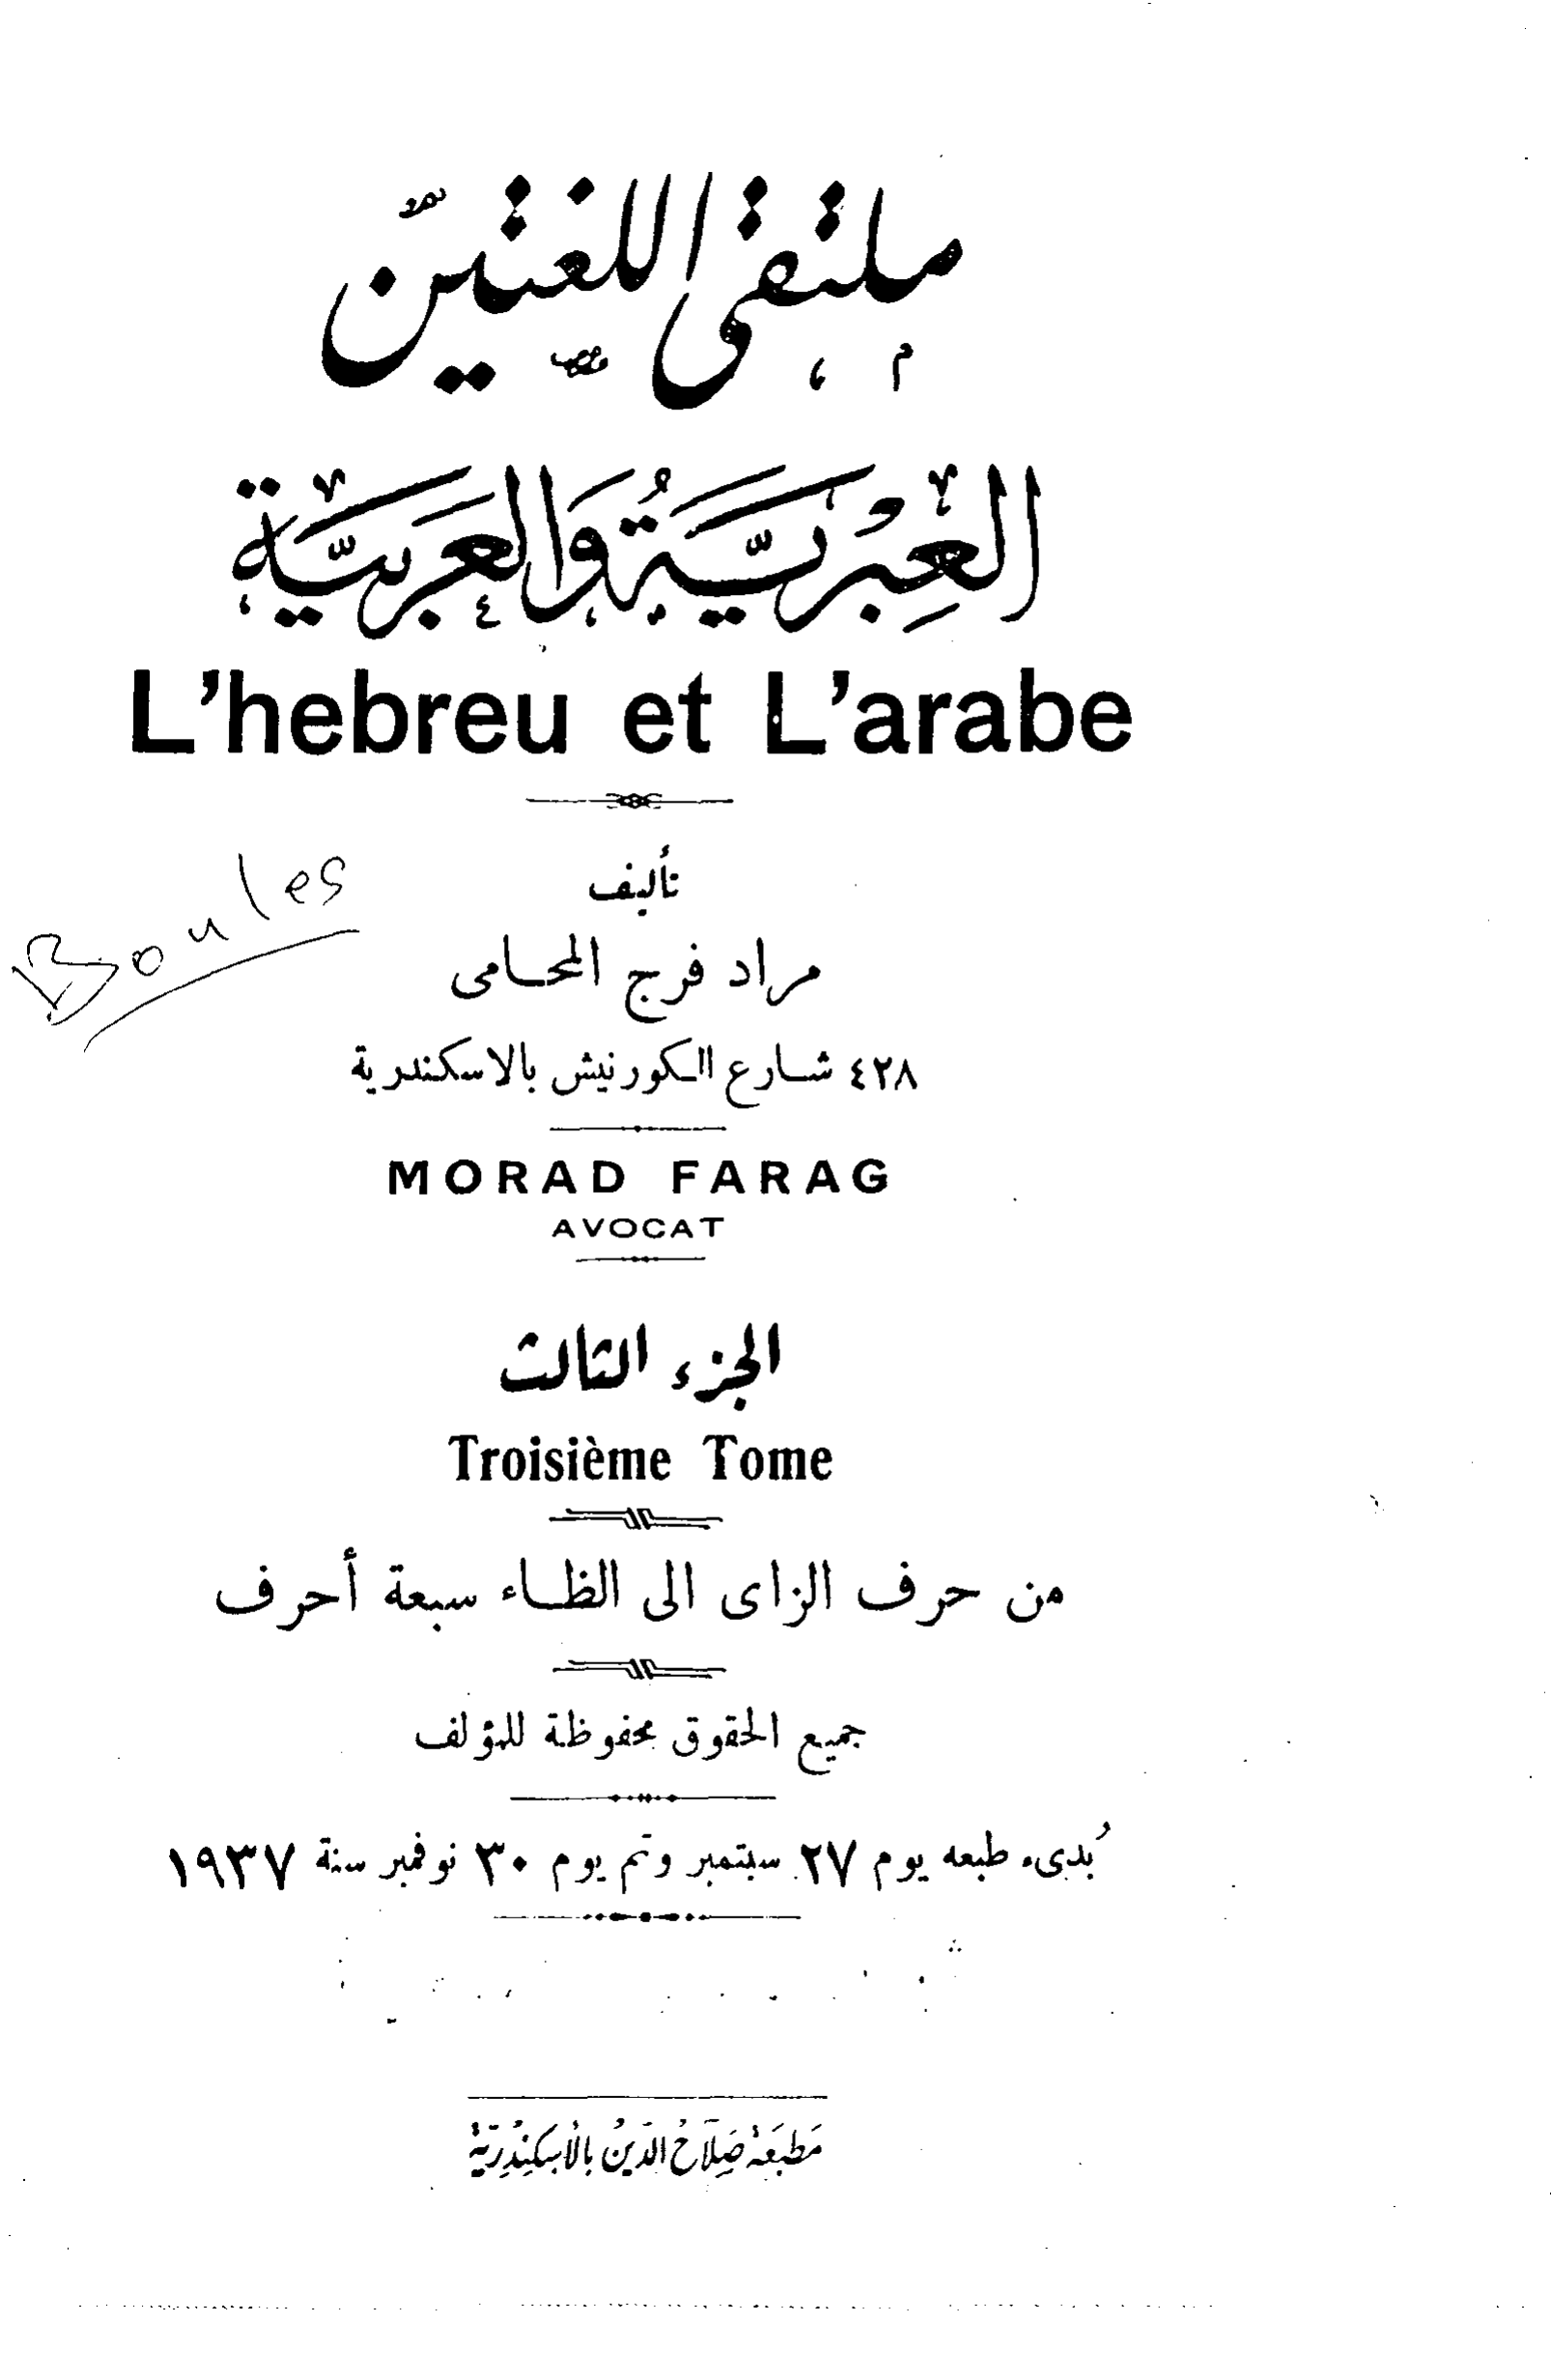 ملتقى اللغتين
العِبْرِيَّةُ وَالعربيَّة
L'hebreu et L'arabe
تأليف
Boules
مراد فرج المحامى
٤٢٨ شارع الكورنيش بالاسكندرية
MORAD FARAG
AVOCAT
الجزء الثالث
Troisième Tome
من حرف الزاى الى الظاء سبعة أحرف
جميع الحقوق محفوظة للمؤلف
بُدىء طبعه يوم ٢٧ سبتمبر وتم يوم ٣٠ نوفمبر سنة ١٩٣٧
مَطبعَة صَلَاحُ الدّينُ بالأسكِنْدِريَّة